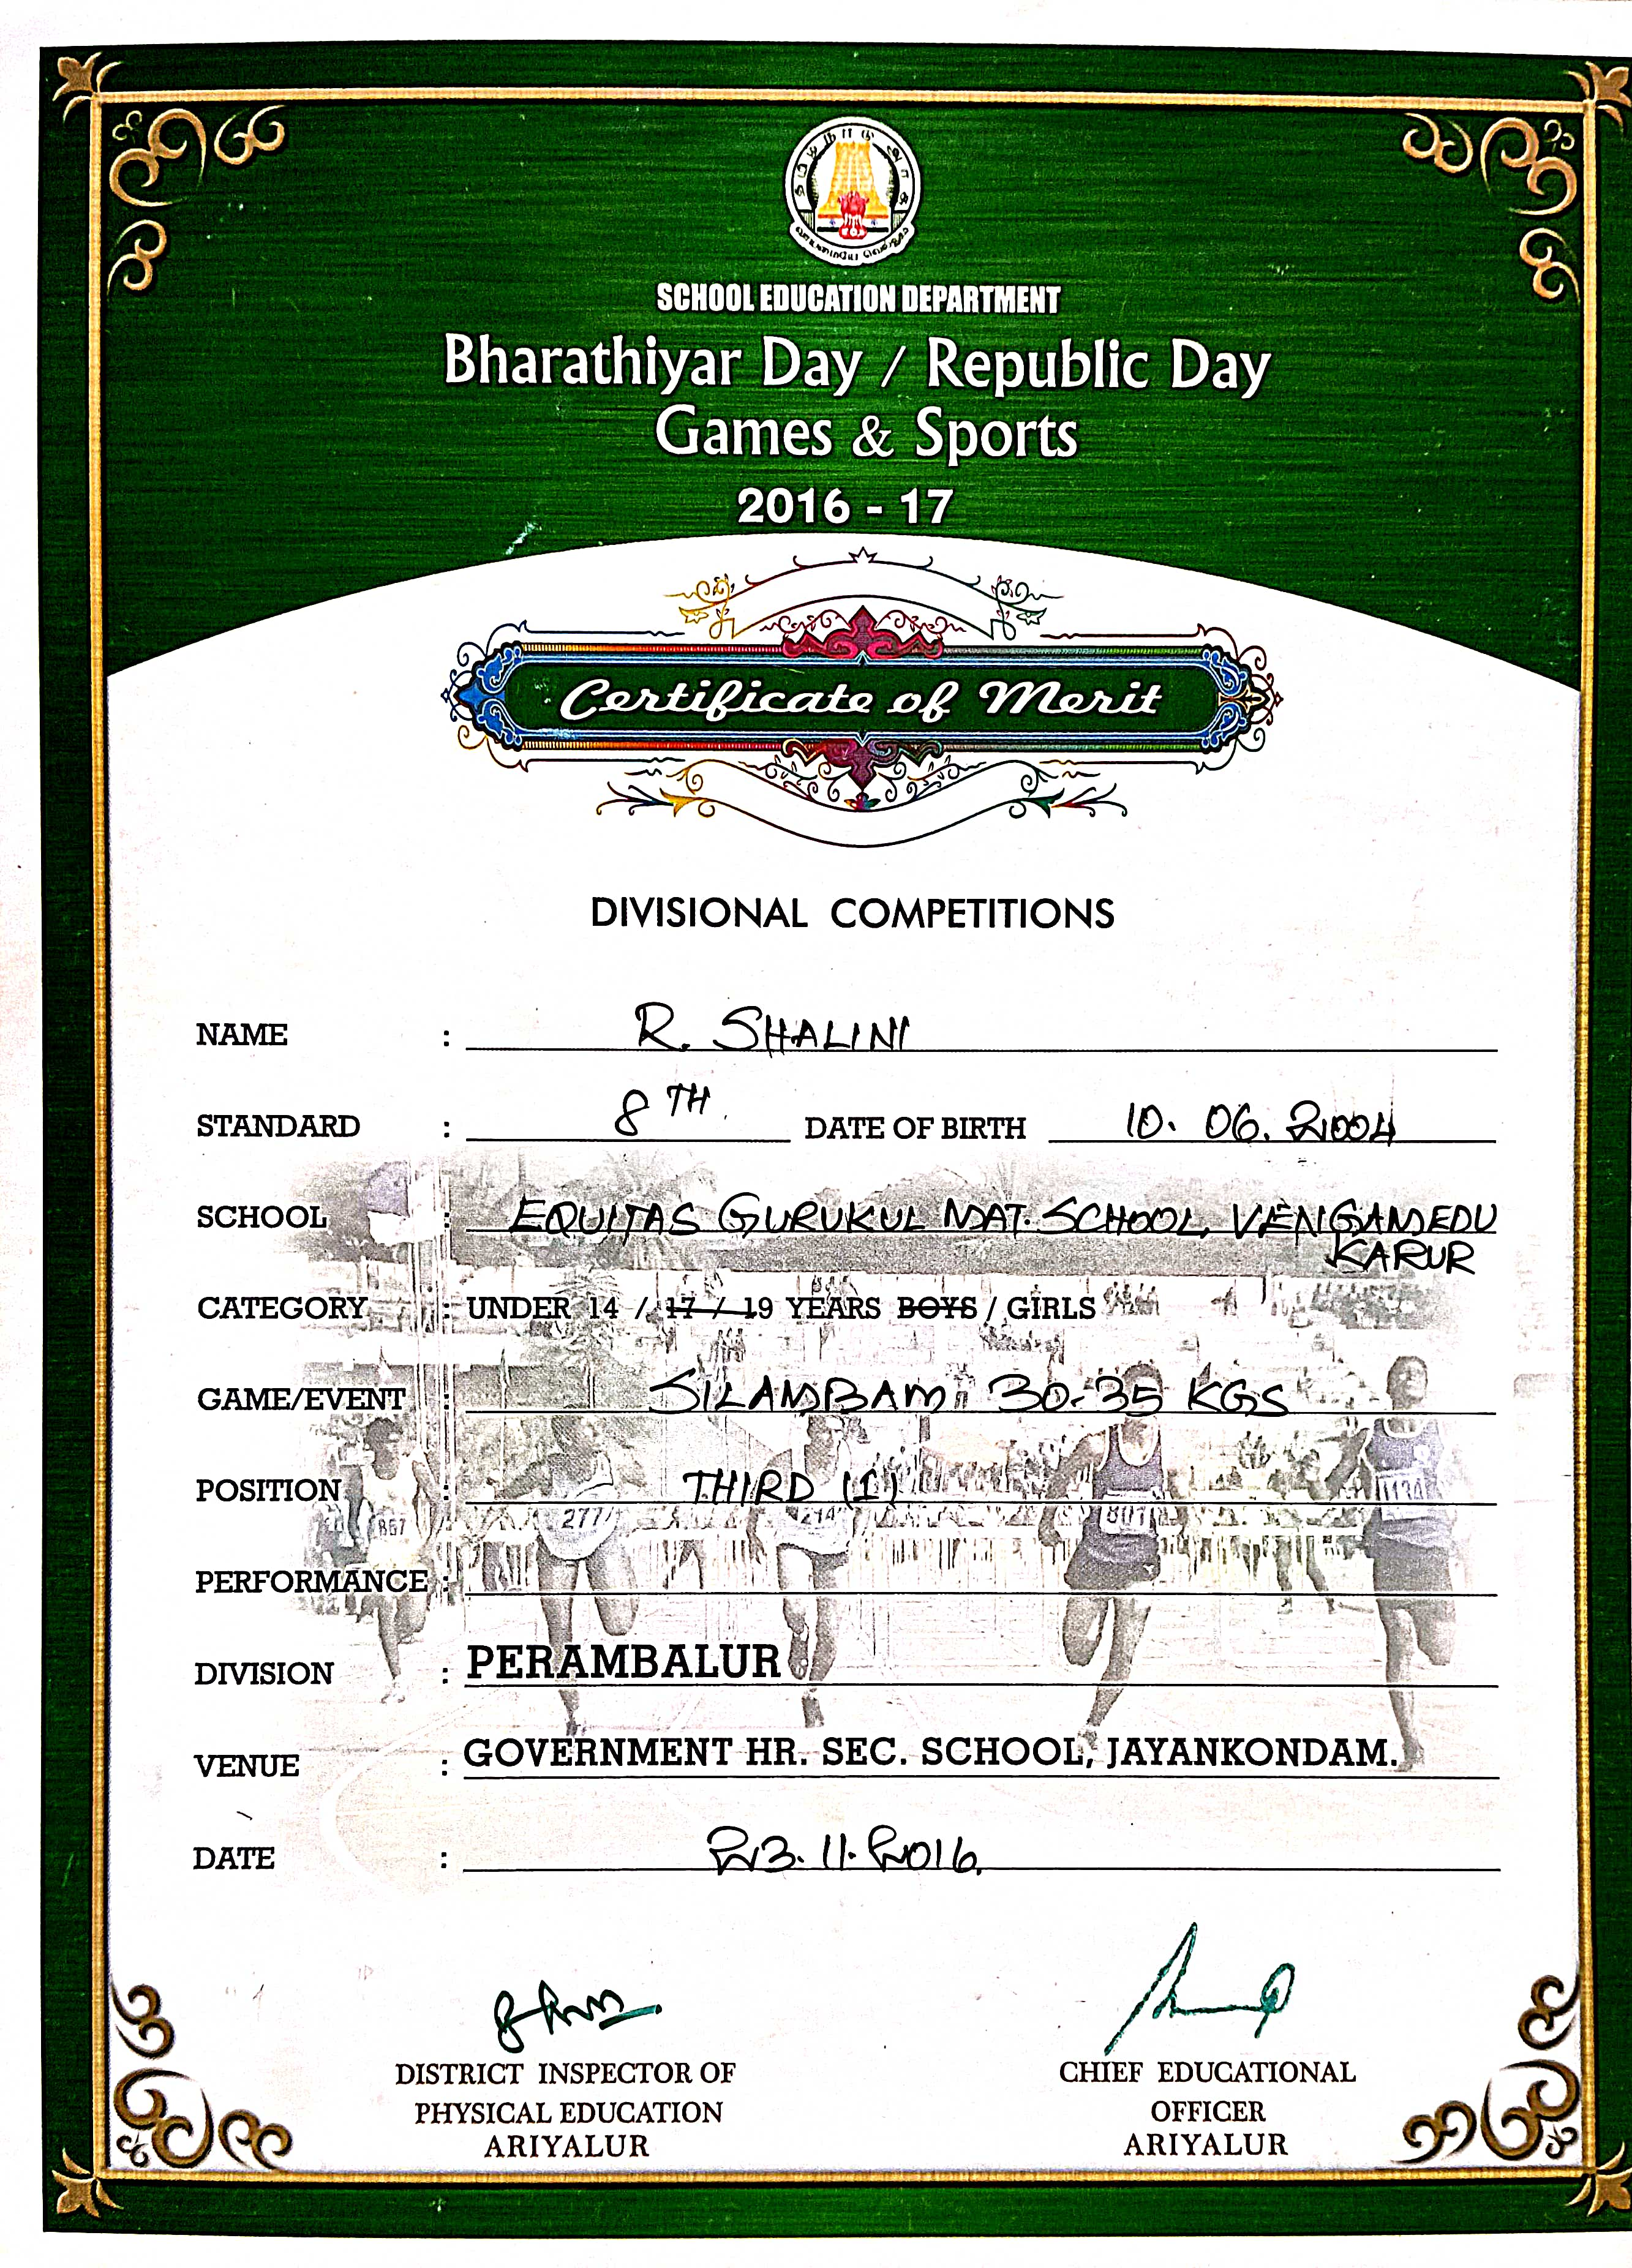 தமிழ்நாடு அரசு
வாய்மையே வெல்லும்
SCHOOL EDUCATION DEPARTMENT
Bharathiyar Day / Republic Day
Games & Sports
2016 - 17
Certificate of Merit
DIVISIONAL COMPETITIONS
NAME : R. SHALINI
STANDARD : 8TH. DATE OF BIRTH 10. 06. 2004
SCHOOL : EQUITAS GURUKUL MAT. SCHOOL, VENGAMEDU
KARUR
CATEGORY : UNDER 14 / 17 / 19 YEARS BOYS / GIRLS
GAME/EVENT : SILAMBAM 30-35 KGS
POSITION : THIRD (1)
867 277 214 801 1134
PERFORMANCE :
DIVISION : PERAMBALUR
VENUE : GOVERNMENT HR. SEC. SCHOOL, JAYANKONDAM.
DATE : 23.11.2016.
DISTRICT INSPECTOR OF CHIEF EDUCATIONAL
PHYSICAL EDUCATION OFFICER
ARIYALUR ARIYALUR